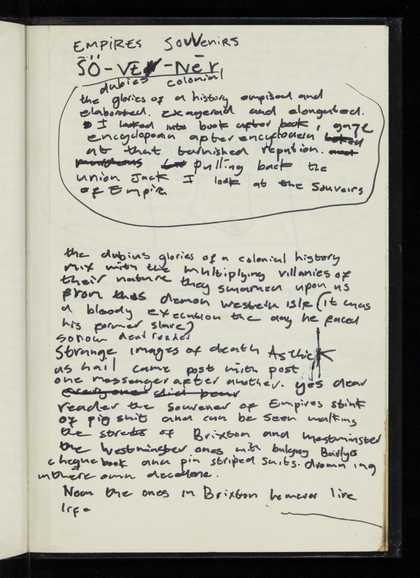 EMPIRES SOUVENIRS
SÖ-VEN-NĒR
dubius colonial
the glories of a history empised and
elaborated. exagerated and elongated.
I looked into book after book, gaze
encyclopedia after encyclopedia looked
at that tarnished repution. and
pulling back the
union Jack I look at the Souveirs
of Empire
the dubius glories of a colonial history
mix with the multiplying villanies of
their nature they swarmed upon us
from this demon western isle (it was
a bloody execution the day he faced
his former slave)
sorrow dear reader
Strange images of death As thick
as hail came post with post
one messenger after another. yes dear
reader the souvener of Empires stink
of pig shit and can be seen walking
the streets of Brixton and westminster
the westminster ones with bulging Barlys
cheque book and pin striped suits. drowning
in there own decadene.
Now the ones in Brixton however live
life